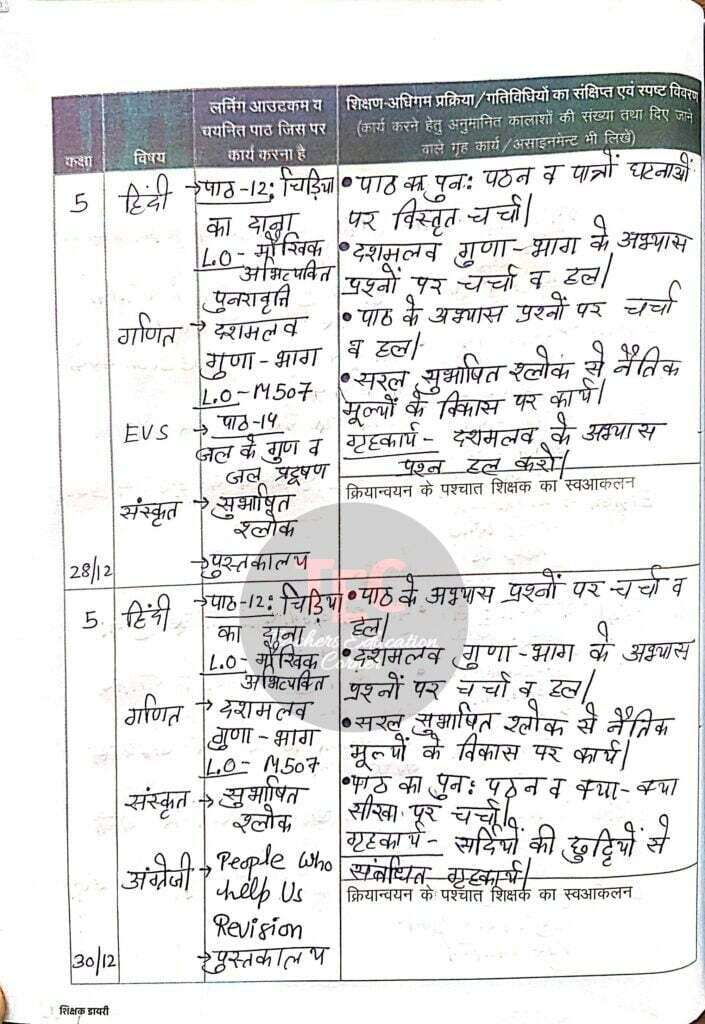 लर्निंग आउटकम व
चयनित पाठ जिस पर
कार्य करना है
शिक्षण-अधिगम प्रक्रिया/गतिविधियों का संक्षिप्त एवं स्पष्ट विवरण
(कार्य करने हेतु अनुमानित कालाशों की संख्या तथा दिए जाने
वाले गृह कार्य/असाइनमेन्ट भी लिखें)
कक्षा
विषय
5
हिंदी
→पाठ-12: चिड़िया
का दाना
L.O- मौखिक
अभिव्यक्ति
पुनरावृत्ति
गणित
→ दशमलव
गुणा-भाग
L.O-M507
EVS
→ पाठ-14
जल के गुण व
जल प्रदूषण
संस्कृत
→ सुभाषित
श्लोक
28/12
→पुस्तकालय
•पाठ का पुन: पठन व पात्रों घटनाओं
पर विस्तृत चर्चा।
•दशमलव गुणा-भाग के अभ्यास
प्रश्नों पर चर्चा व हल।
•पाठ के अभ्यास प्रश्नों पर चर्चा
व हल।
•सरल सुभाषित श्लोक से नैतिक
मूल्यों के विकास पर कार्य।
गृहकार्य- दशमलव के अभ्यास
प्रश्न हल करो।
क्रियान्वयन के पश्चात शिक्षक का स्वआकलन
5
हिंदी
→पाठ-12: चिड़िया
का दाना
L.O- मौखिक
अभिव्यक्ति
गणित
→ दशमलव
गुणा-भाग
L.O-M507
संस्कृत
→ सुभाषित
श्लोक
अंग्रेजी
→ People who
help Us
Revision
30/12
→पुस्तकालय
•पाठ के अभ्यास प्रश्नों पर चर्चा व
हल।
•दशमलव गुणा-भाग के अभ्यास
प्रश्नों पर चर्चा व हल।
•सरल सुभाषित श्लोक से नैतिक
मूल्यों के विकास पर कार्य।
•पाठ का पुन: पठन व क्या-क्या
सीखा पर चर्चा।
गृहकार्य- सर्दियों की छुट्टियों से
संबंधित गृहकार्य।
क्रियान्वयन के पश्चात शिक्षक का स्वआकलन
TEC
Education
Corner
शिक्षक डायरी